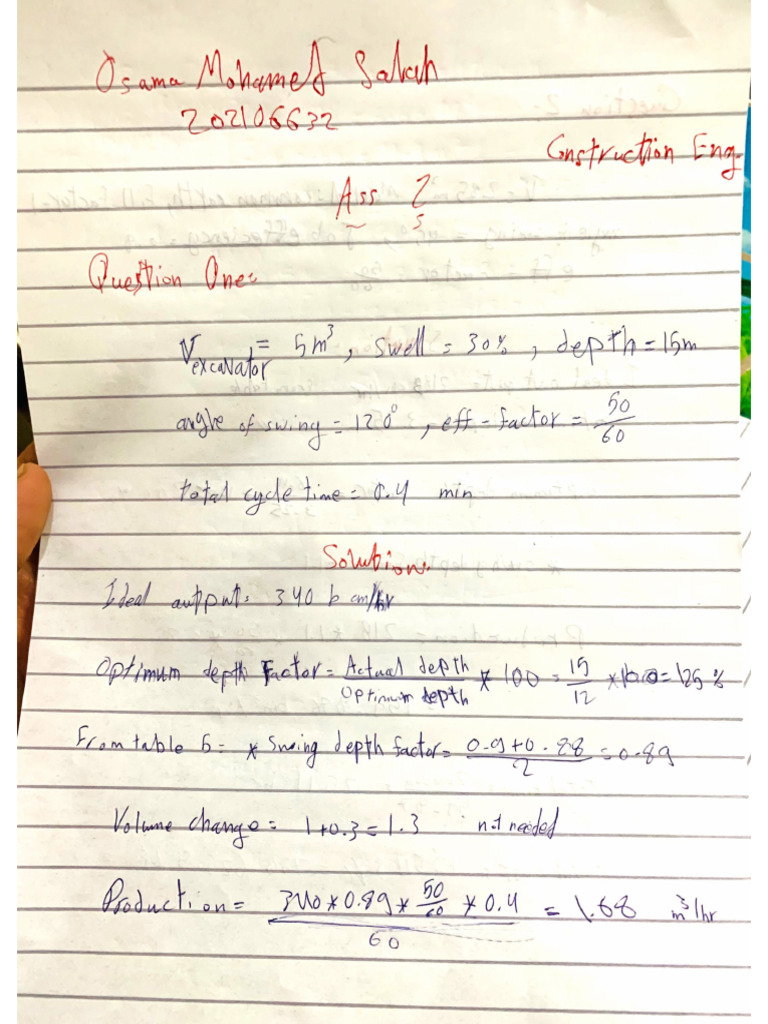 Osama Mohamed Salah
202106632
Construction Eng.
Ass 2
5
Question One:
V excavator = 5m³, swell = 30%, depth = 15m
angle of swing = 120°, eff-factor = 50/60
total cycle time = 0.4 min
Solution:
Ideal output: 340 b cm/hr
Optimum depth Factor = Actual depth / Optimum depth * 100 = 15/12 * 100 = 125 %
From table 6: * Swing depth factor = 0.9+0.88 / 2 = 0.89
Volume change = 1+0.3 = 1.3 not needed
Production = 340 * 0.89 * 50/60 * 0.4 / 60 = 1.68 m³/hr